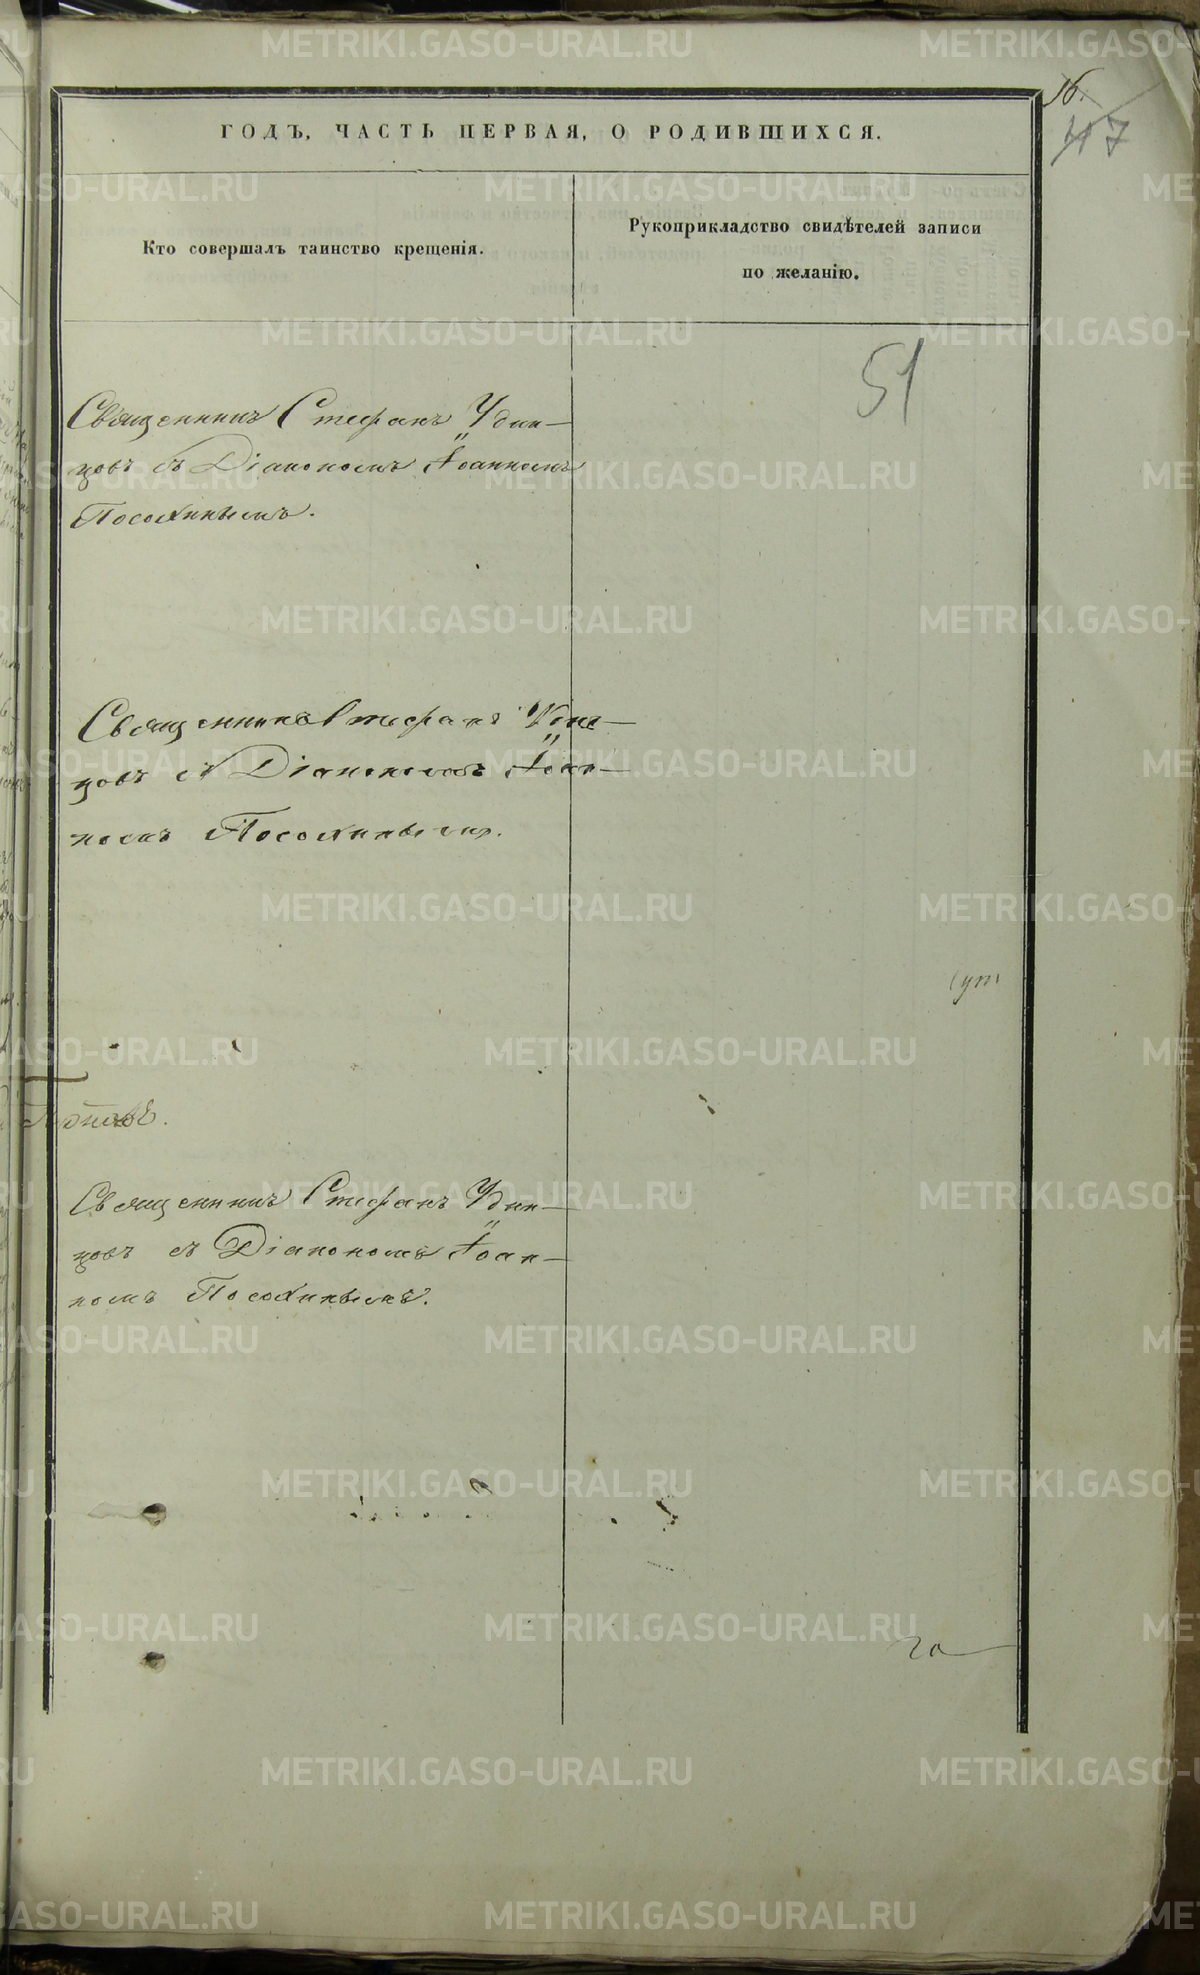 16.
ГОДЪ, ЧАСТЬ ПЕРВАЯ, О РОДИВШИХСЯ.
7
Кто совершалъ таинство крещенія.
Рукоприкладство свидѣтелей записи
по желанію.
51
Священникъ Стефанъ Удин-
цовъ съ Діакономъ Іоанномъ
Посохинымъ.
Священникъ Стефанъ Удин-
цовъ съ Діакономъ Іоан-
номъ Посохинымъ.
Священникъ Стефанъ Удин-
цовъ съ Діакономъ Іоан-
номъ Посохинымъ.
METRIKI.GASO-URAL.RU